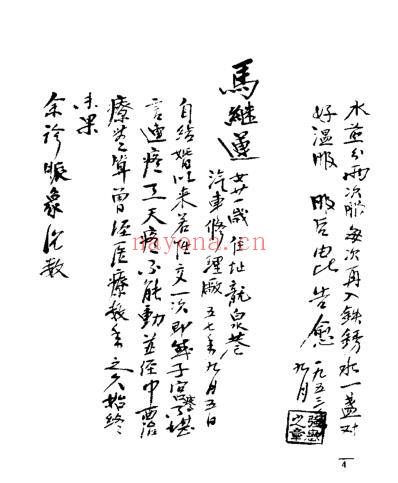 水煎分两次服每次再入鉄銹水一盏对
好温服 服后由此告愈 一九五三 九月
馬継運 女廿一歲住址龍泉巷
汽車修理廠 五七年九月五日
自結婚以来若性交一次即 子宫 堪
言連疼三天疼不能動並经中西治
療 算曾经医療数年之久始终
未果
余诊脈象沉数
nayona.cn
4